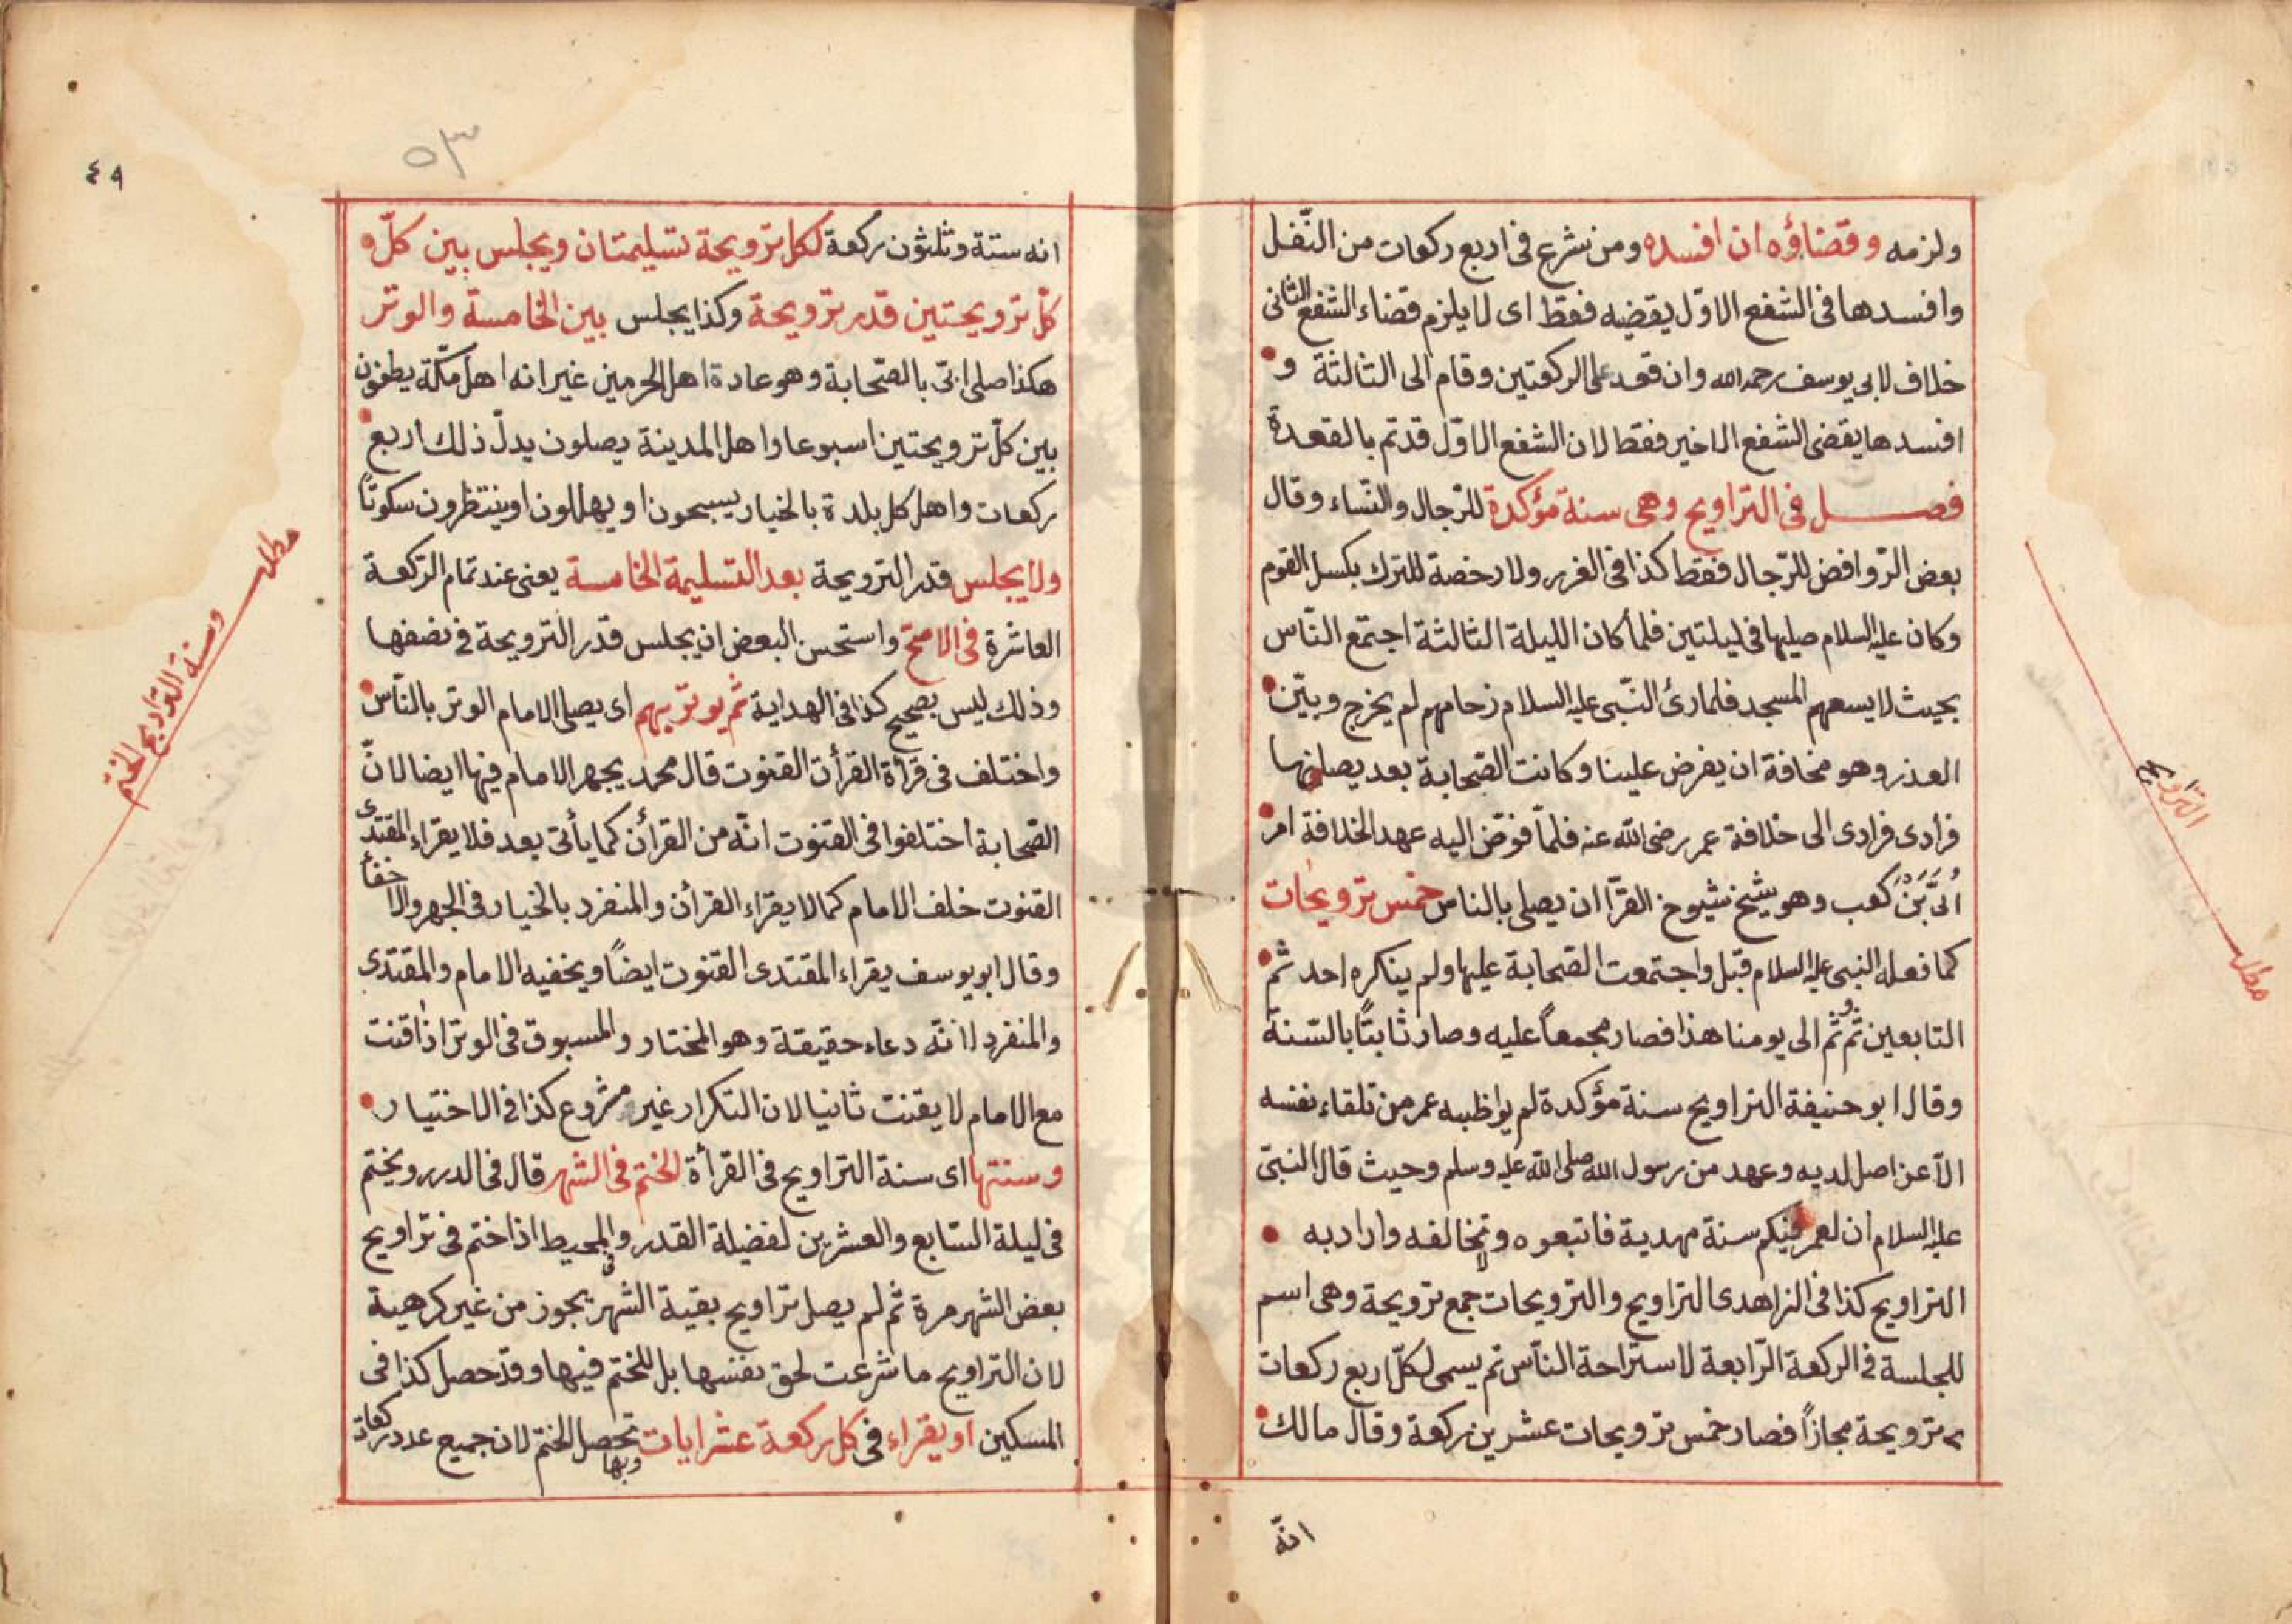 ولزمه وقضاؤه ان افسده ومن شرع فى اربع ركعات من النّفل
وافسدها فى الشفع الاوّل يقضيه فقط اى لا يلزم قضاء الشفع الثانى
خلاف لابى يوسف رحمه الله وان قعد على الركعتين وقام الى الثالثة و
افسدها يقضى الشفع الاخير فقط لان الشفع الاوّل قد تم بالقعدة
فصل فى التراويح وهى سنة مؤكدة للرّجال والنّساء وقال
بعض الرّوافض للرّجال فقط كذا فى الغرر ولا رخصة للترك بكسل القوم
وكان عليه السلام صليها فى ليلتين فلما كان الليلة الثالثة اجتمع النّاس
بحيث لا يسعهم المسجد فلما رئ النّبى عليه السلام زحامهم لم يخرج وبيّن
العذر وهو مخافة ان يفرض علينا وكانت الصّحابة بعد يصلونها
فرادى فرادى الى خلافة عمر رضى الله عنه فلمّا فوّض اليه عهد الخلافة امر
اُبَىّ بَنَ كعب وهو شيخ شيوخ القرّا ان يصلى بالناس خمس ترويحات
كما فعله النبى عليه السلام قبل واجتمعت الصّحابة عليها ولم ينكره احد ثم
التابعين ثُم ثُم الى يومنا هذا فصار مجمعاً عليه وصار ثابتًا بالسّنة
وقال ابو حنيفة التراويح سنة مؤكدة لم يواظبه عمر من تلقاء نفسه
الّا عن اصل لديه وعهد من رسول الله صلى الله عليه وسلم وحيث قال النبىّ
عليه السلام ان لعمر فيكم سنة مهدية فاتبعوه و تخالفه واراد به
التراويح كذا فى الزاهدى التراويح والترويحات جمع ترويحة وهى اسم
للجلسة فى الركعة الرّابعة لاستراحة النّاس ثم يسمى لكلّ اربع ركعات
ترويحة مجازاً فصار خمس ترويحات عشرين ركعة وقال مالك
انّه
التّراويح
مطلب
٤٩
٥٣
انه ستة وثلثون ركعة لكل ترويحة تسليمتان ويجلس بين كلّ و
كلّ ترويحتين قدر ترويحة وكذا يجلس بين الخامسة والوتر
هكذا صلى ابىّ بالصّحابة وهو عادة اهل الحرمين غير انه اهل مكّة يطفون
بين كلّ ترويحتين اسبوعا واهل المدينة يصلون بدلّ ذلك اربع
ركعات واهل كل بلدة بالخيار يسبحون او يهللون او ينتظرون سكوتًا
ولا يجلس قدر الترويحة بعد التسليمة الخامسة يعنى عند تمام الرّكعة
العاشرة فى الاصحّ واستحسن البعض ان يجلس قدر الترويحة فى نصفها
وذلك ليس بصحيح كذا فى الهداية ثم يوتر بهم اى يصلى الامام الوتر بالنّاس
واختلف فى قرأة القرأن القنوت قال محمد يجهر الامام فيها ايضا لانّ
الصّحابة اختلفوا فى القنوت انّه من القرأن كما يأتى بعد فلا يقراء المقتدى
القنوت خلف الامام كما لا يقراء القرأن والمنفرد بالخيار فى الجهر والاخفأ
وقال ابو يوسف يقراء المقتدى القنوت ايضاً ويخفيه الامام والمقتدى
والمنفرد لانّه دعاء حقيقة وهو المختار والمسبوق فى الوتر اذا قنت
مع الامام لا يقنت ثانيا لان التكرار غير مشروع كذا فى الاختيار
وسنتها اى سنة التراويح فى القرأة الختم فى الشهر قال فى الدرر ويختم
فى ليلة السّابع والعشرين لفضيلة القدر و فى المحيط اذا ختم فى تراويح
بعض الشهر مرة ثم لم يصل تراويح بقية الشهر يجوز من غير كرهية
لان التراويح ما شرعت لحق نفسها بل للختم فيها وقد حصل كذا فى
المسكين او يقراء فى كل ركعة عشر ايات وبها تحصل الختم لان جميع عدد ركعات
مطلب
وسنة التراويح الختم